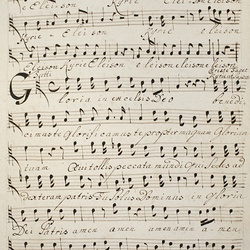 Eleison Kyrie Eleison eleison
Kyrie Eleison Kyrie eleison
Eleison Kyrie Eleison eleison eleison eleison
Tutti
Gloria in excelsis Deo bened:
cimus te Glorificamus te propter magnam Gloriam
tuam Qui tollis peccata mundi Qui sedes ad
dexteram patris tu Solus Dominus in gloria
Dei Patris amen amen amen amen a men